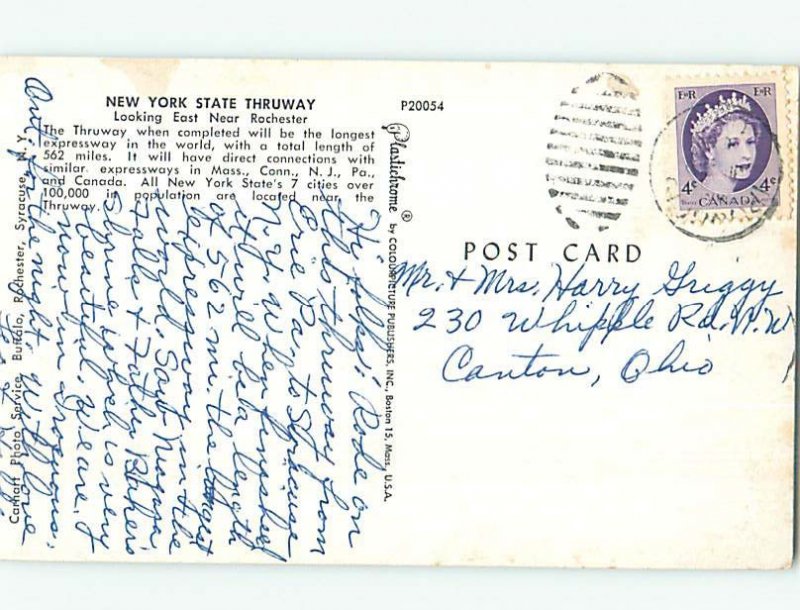 NEW YORK STATE THRUWAY
Looking East Near Rochester
The Thruway when completed will be the longest
expressway in the world, with a total length of
562 miles. It will have direct connections with
similar expressways in Mass., Conn., N. J., Pa.,
and Canada. All New York State's 7 cities over
100,000 in population are located near the
Thruway.
P20054
Hi folks: Rode on
this thruway from
Erie Pa. to Syracuse
N. Y. When finished
it will be a length
of 562 mi. the longest
expressway in the
world. Saw Niagara
Falls & Father Baker's
Shrine which is very
beautiful. We are
now in Iroquois,
Ont. for the night. Love
Carhart Photo Service, Buffalo, Rochester, Syracuse, N. Y.
Plastichrome ® by COLOURPICTURE PUBLISHERS, INC., Boston 15, Mass. U.S.A.
POST CARD
E II R E II R
4c 4c
CANADA
Mr. + Mrs. Harry Griggy
230 Whipple Rd. N. W.
Canton, Ohio